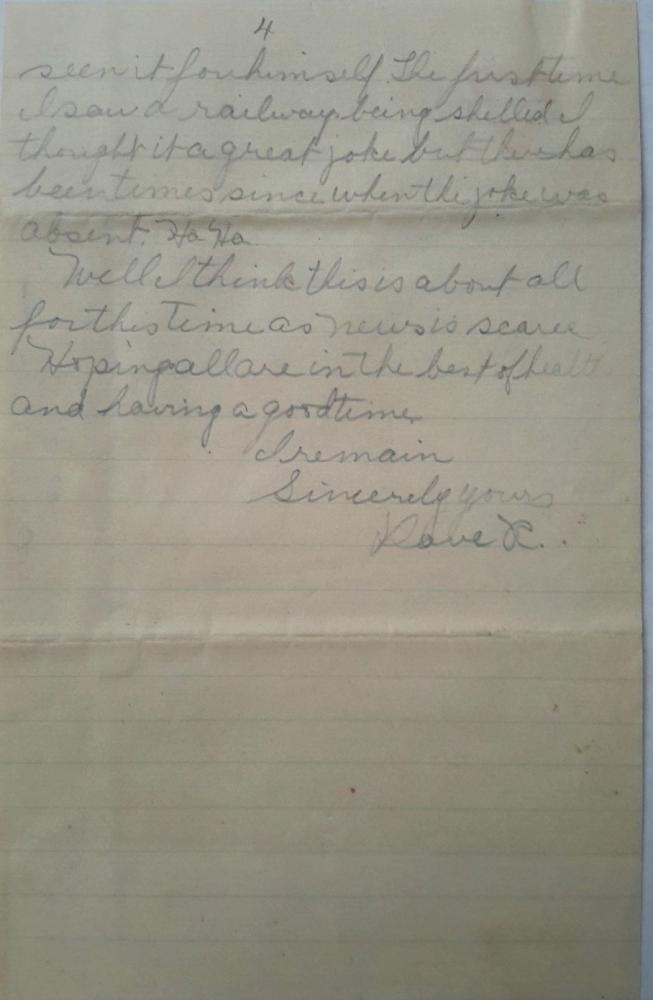 4
seen it for himself. The first time
I saw a railway being shelled I
thought it a great joke but there has
been times since when the joke was
absent. Ha Ha
Well I think this is about all
for this time as news is scarce
Hoping all are in the best of health
and having a good time.
I remain
Sincerely yours
Dave K.